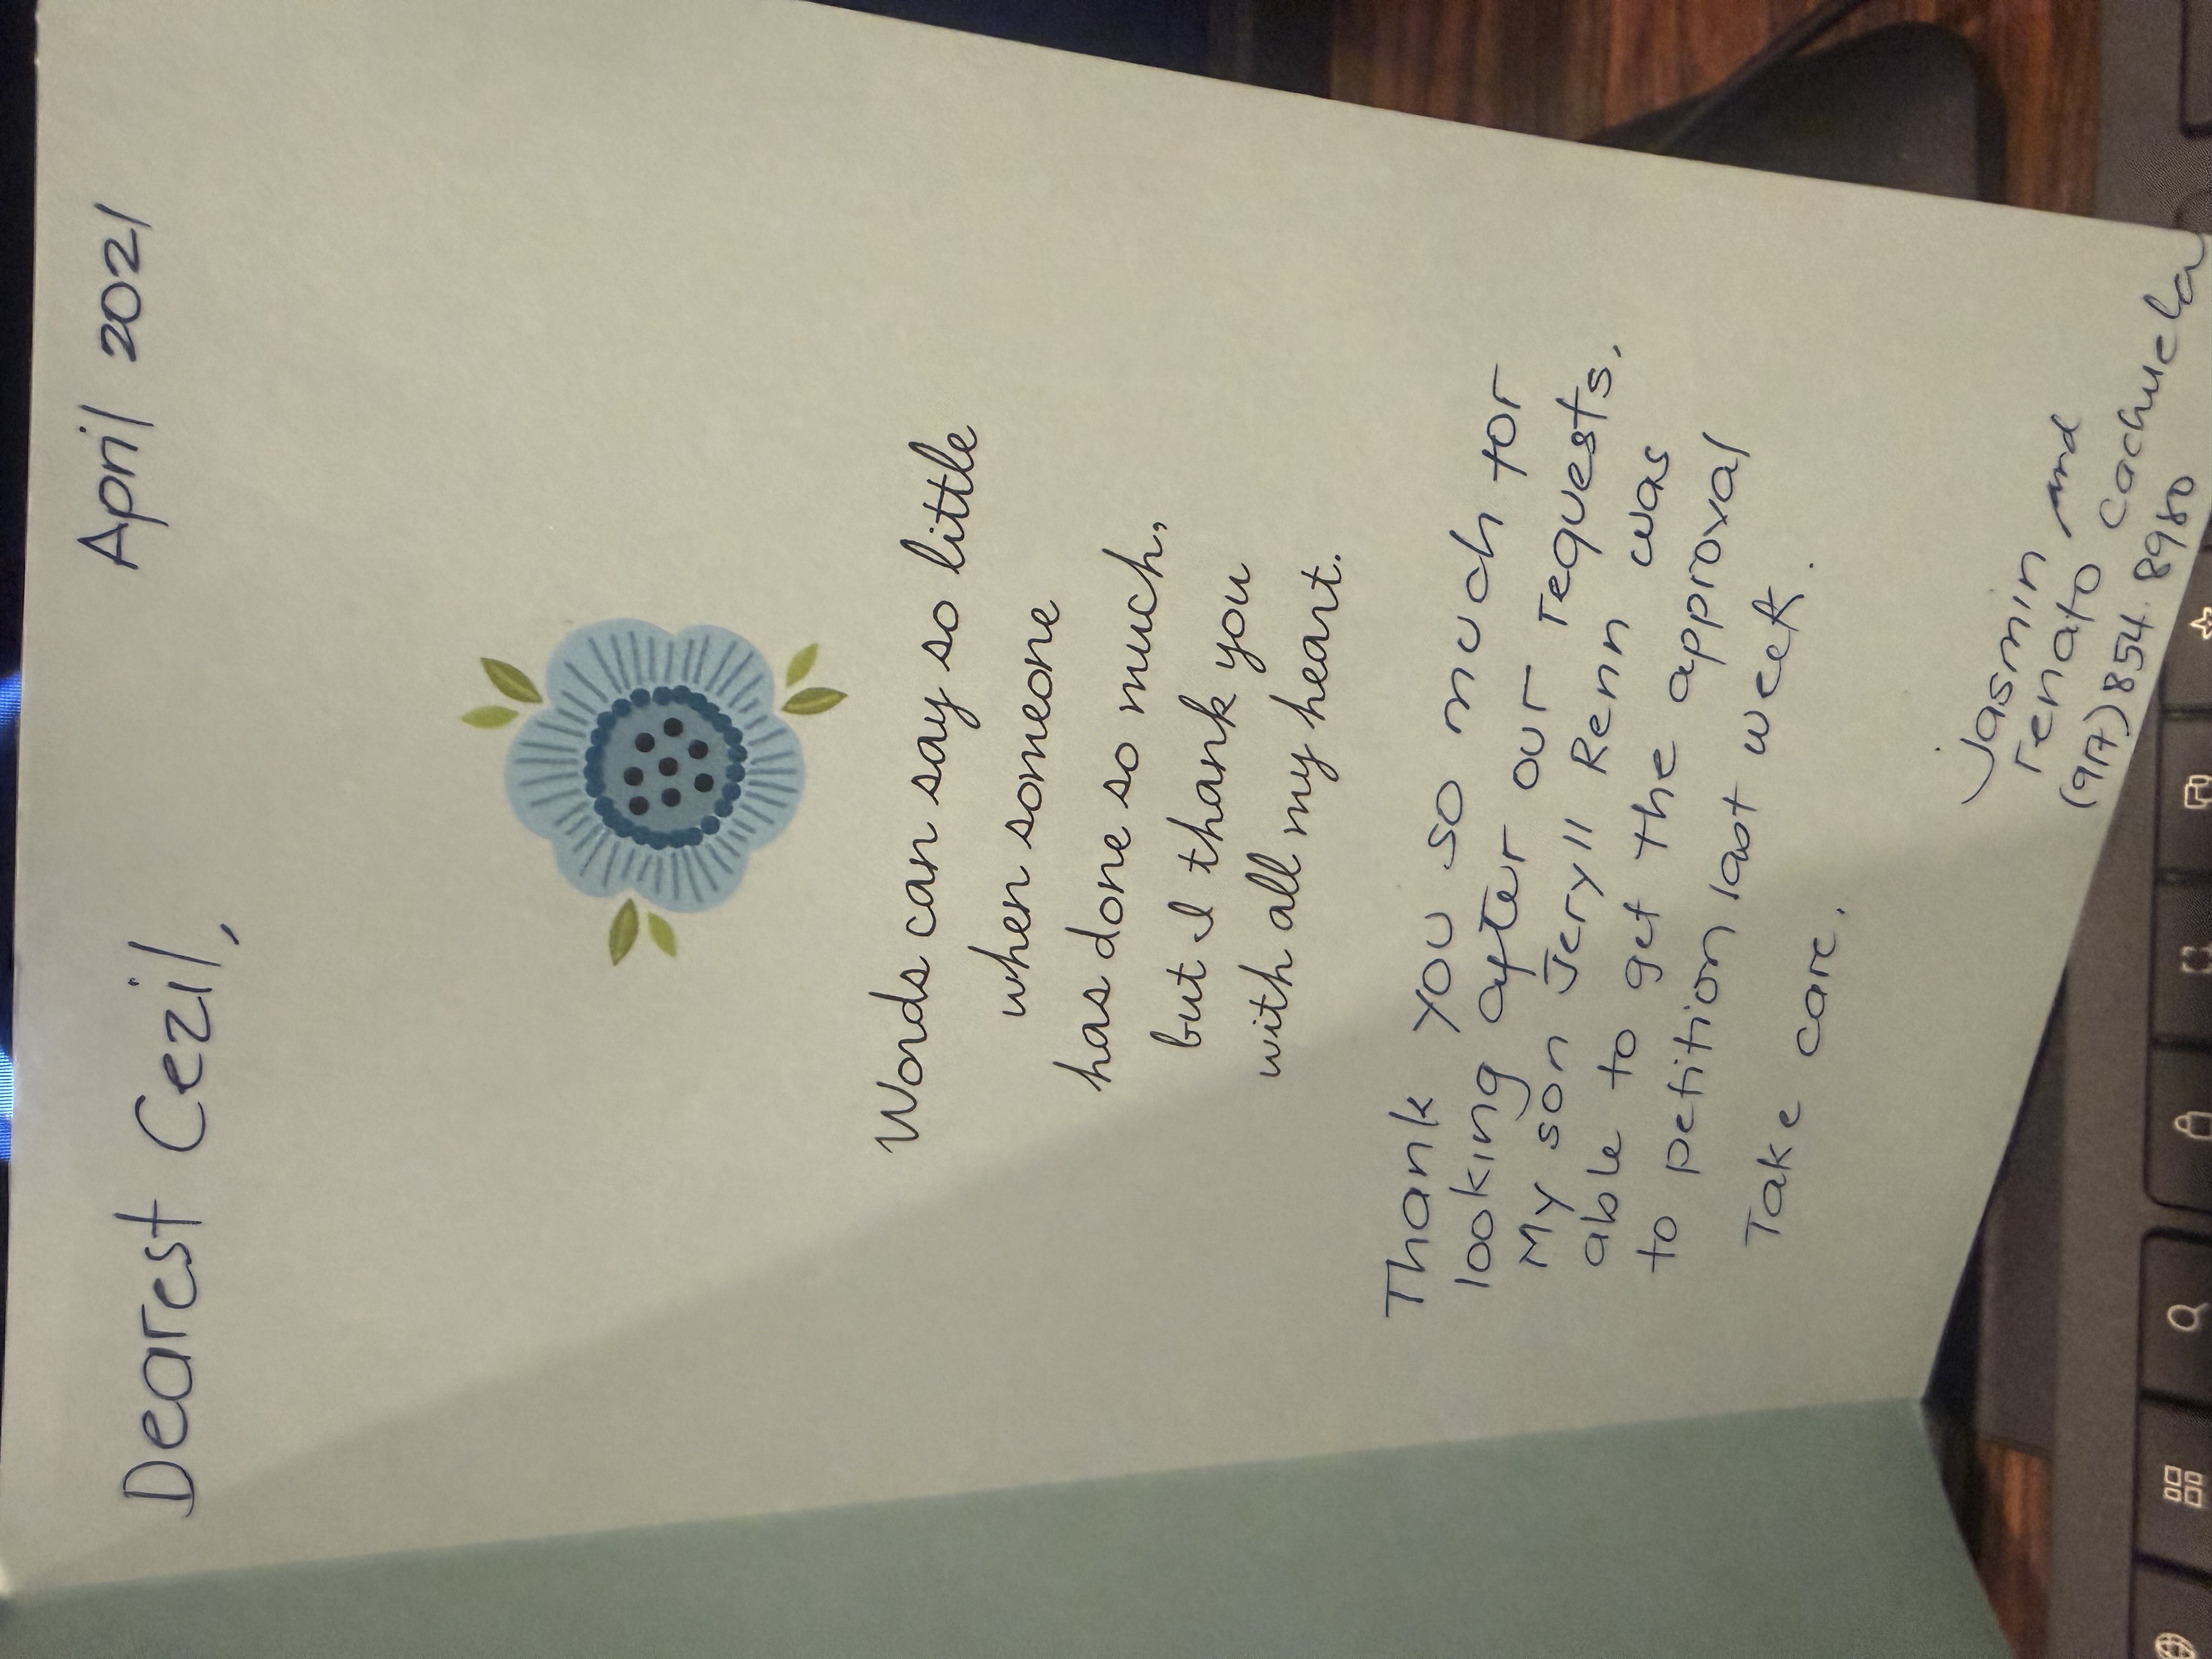 April 2021
Dearest Cezil,
Words can say so little
when someone
has done so much,
but I thank you
with all my heart.
Thank you so much for
looking after our requests.
My son Jeryll Renn was
able to get the approval
to petition last week.
Take care.
Jasmin and
renato Cachuela
(917) 854. 8980